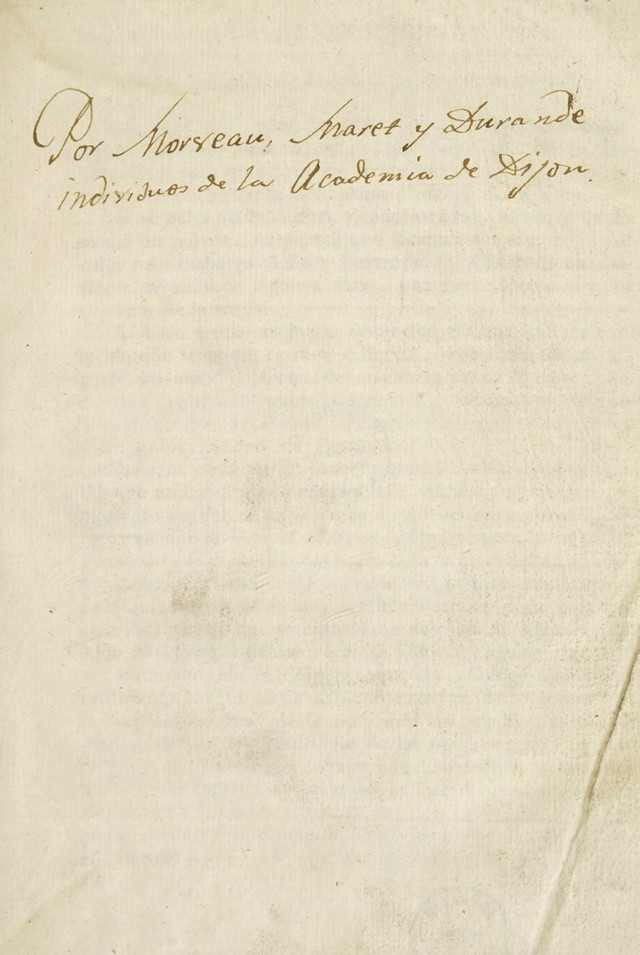 Por Morveau, Maret y Durande
individuos de la Academia de Dijon.